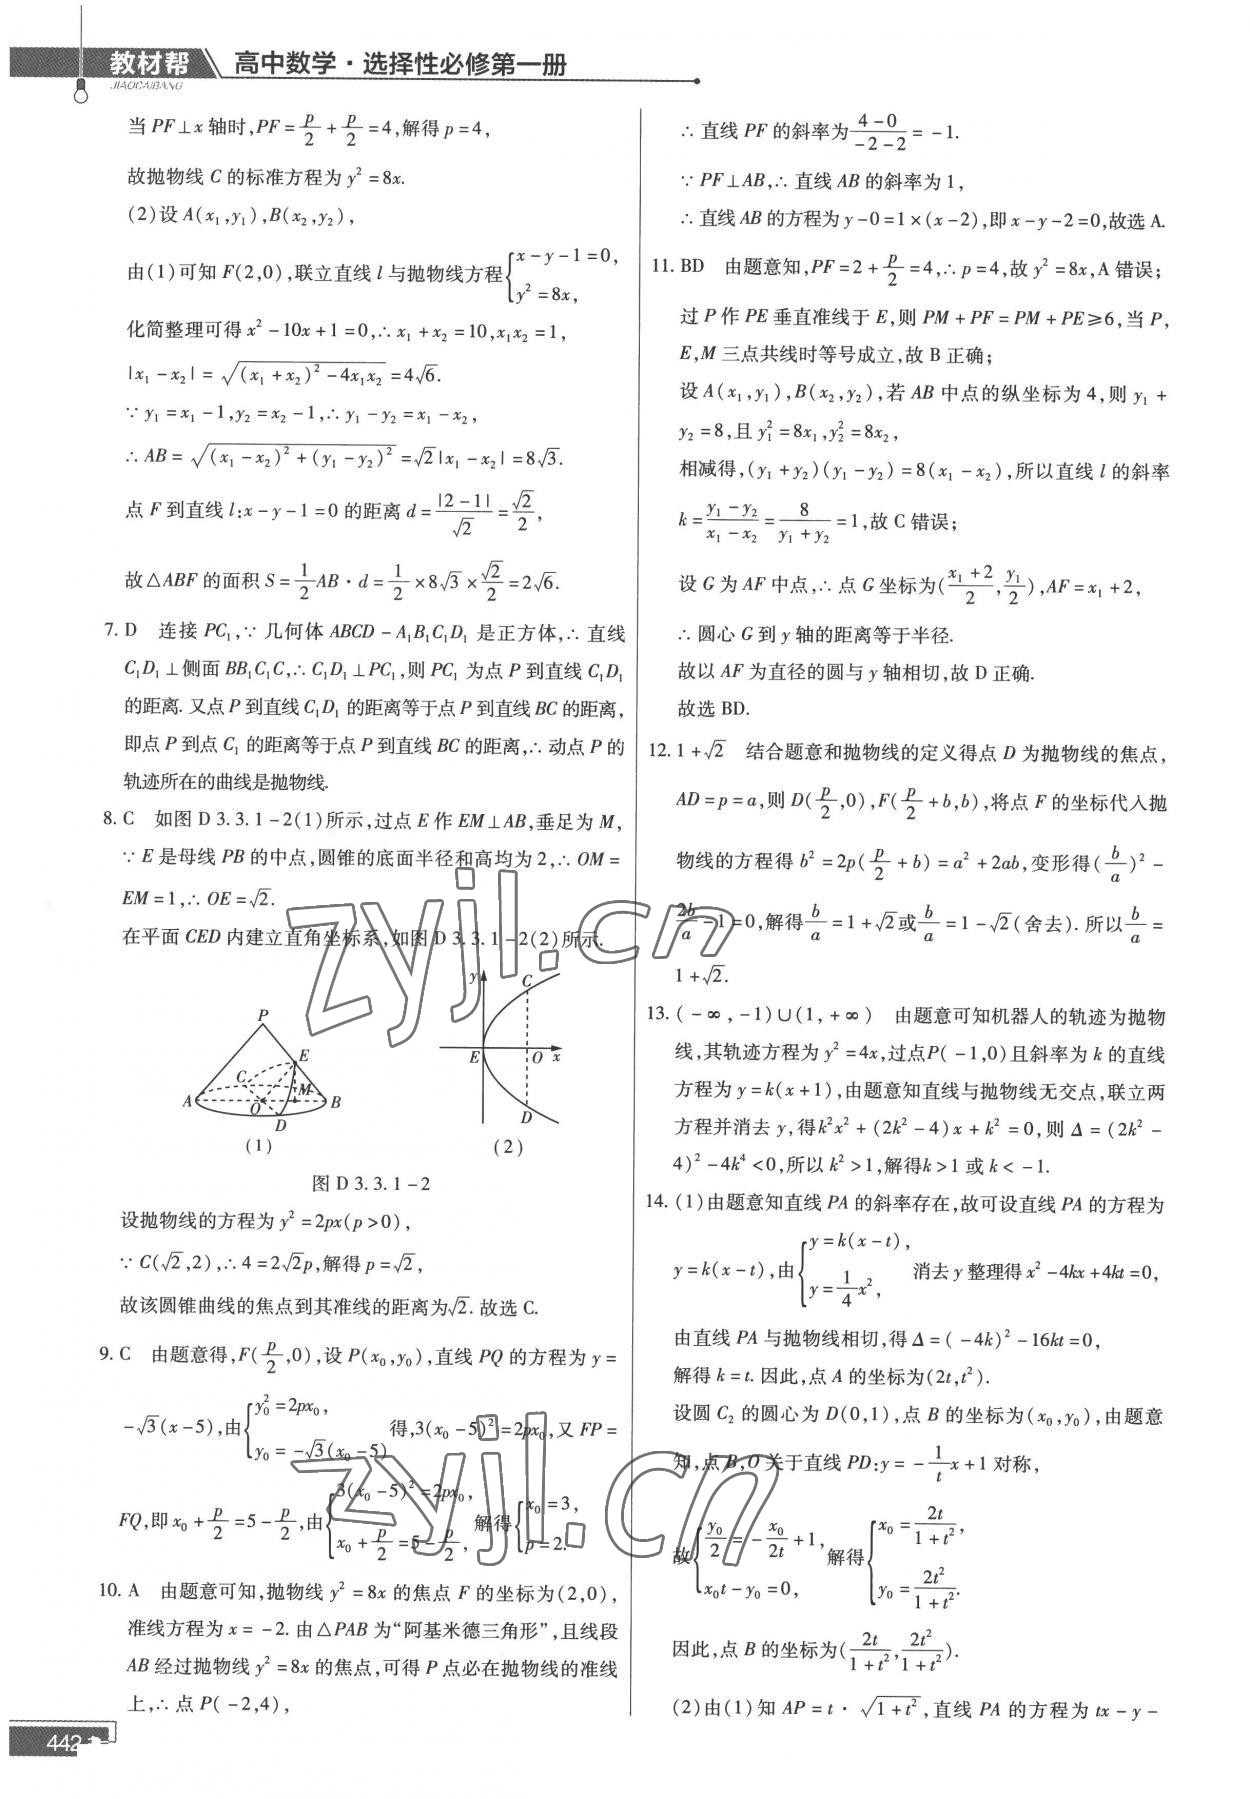 教材帮 高中数学·选择性必修第一册
JIAOCAIBANG
当 PF⊥x 轴时,PF = p/2 + p/2 = 4,解得 p = 4,
故抛物线 C 的标准方程为 y² = 8x.
(2)设 A(x₁,y₁),B(x₂,y₂),
由(1)可知 F(2,0),联立直线 l 与抛物线方程{x - y - 1 = 0, y² = 8x,
化简整理可得 x² - 10x + 1 = 0,∴ x₁ + x₂ = 10,x₁x₂ = 1,
|x₁ - x₂| = √((x₁ + x₂)² - 4x₁x₂) = 4√6.
∵ y₁ = x₁ - 1,y₂ = x₂ - 1,∴ y₁ - y₂ = x₁ - x₂,
∴ AB = √((x₁ - x₂)² + (y₁ - y₂)²) = √2|x₁ - x₂| = 8√3.
点 F 到直线 l:x - y - 1 = 0 的距离 d = |2 - 1|/√2 = √2/2,
故△ABF 的面积 S = 1/2 AB · d = 1/2 × 8√3 × √2/2 = 2√6.
7. D 连接 PC₁,∵ 几何体 ABCD - A₁B₁C₁D₁ 是正方体,∴ 直线
C₁D₁⊥侧面 BB₁C₁C,∴ C₁D₁⊥PC₁,则 PC₁ 为点 P 到直线 C₁D₁
的距离. 又点 P 到直线 C₁D₁ 的距离等于点 P 到直线 BC 的距离,
即点 P 到点 C₁ 的距离等于点 P 到直线 BC 的距离,∴ 动点 P 的
轨迹所在的曲线是抛物线.
8. C 如图 D 3.3.1-2(1)所示,过点 E 作 EM⊥AB,垂足为 M,
∵ E 是母线 PB 的中点,圆锥的底面半径和高均为 2,∴ OM =
EM = 1,∴ OE = √2.
在平面 CED 内建立直角坐标系,如图 D 3.3.1-2(2)所示.
P
E
C
M
A
O
B
D
(1)
y
C
E
O
x
D
(2)
图 D 3.3.1-2
设抛物线的方程为 y² = 2px(p > 0),
∵ C(√2,2),∴ 4 = 2√2p,解得 p = √2,
故该圆锥曲线的焦点到其准线的距离为√2. 故选 C.
9. C 由题意得,F(p/2,0),设 P(x₀,y₀),直线 PQ 的方程为 y =
-√3(x - 5),由{y₀² = 2px₀, y₀ = -√3(x₀ - 5) 得,3(x₀ - 5)² = 2px₀,又 FP =
FQ,即 x₀ + p/2 = 5 - p/2,由{3(x₀ - 5)² = 2px₀, x₀ + p/2 = 5 - p/2, 解得{x₀ = 3, p = 2.
10. A 由题意可知,抛物线 y² = 8x 的焦点 F 的坐标为(2,0),
准线方程为 x = -2. 由△PAB 为“阿基米德三角形”,且线段
AB 经过抛物线 y² = 8x 的焦点,可得 P 点必在抛物线的准线
上,∴ 点 P(-2,4),
∴ 直线 PF 的斜率为(4 - 0)/(-2 - 2) = -1.
∵ PF⊥AB,∴ 直线 AB 的斜率为 1,
∴ 直线 AB 的方程为 y - 0 = 1 × (x - 2),即 x - y - 2 = 0,故选 A.
11. BD 由题意知,PF = 2 + p/2 = 4,∴ p = 4,故 y² = 8x,A 错误;
过 P 作 PE 垂直准线于 E,则 PM + PF = PM + PE≥6,当 P,
E,M 三点共线时等号成立,故 B 正确;
设 A(x₁,y₁),B(x₂,y₂),若 AB 中点的纵坐标为 4,则 y₁ +
y₂ = 8,且 y₁² = 8x₁,y₂² = 8x₂,
相减得,(y₁ + y₂)(y₁ - y₂) = 8(x₁ - x₂),所以直线 l 的斜率
k = (y₁ - y₂)/(x₁ - x₂) = 8/(y₁ + y₂) = 1,故 C 错误;
设 G 为 AF 中点,∴ 点 G 坐标为((x₁ + 2)/2, y₁/2),AF = x₁ + 2,
∴ 圆心 G 到 y 轴的距离等于半径.
故以 AF 为直径的圆与 y 轴相切,故 D 正确.
故选 BD.
12. 1 + √2 结合题意和抛物线的定义得点 D 为抛物线的焦点,
AD = p = a,则 D(p/2,0),F(p/2 + b,b),将点 F 的坐标代入抛
物线的方程得 b² = 2p(p/2 + b) = a² + 2ab,变形得(b/a)² -
2b/a - 1 = 0,解得 b/a = 1 + √2 或 b/a = 1 - √2(舍去). 所以 b/a =
1 + √2.
13. (-∞,-1)∪(1,+∞) 由题意可知机器人的轨迹为抛物
线,其轨迹方程为 y² = 4x,过点P(-1,0)且斜率为 k 的直线
方程为 y = k(x + 1),由题意知直线与抛物线无交点,联立两
方程并消去 y,得k²x² + (2k² - 4)x + k² = 0,则 Δ = (2k² -
4)² - 4k⁴ < 0,所以 k² > 1,解得k > 1 或 k < -1.
14. (1)由题意知直线 PA 的斜率存在,故可设直线 PA 的方程为
y = k(x - t),由{y = k(x - t), y = 1/4 x², 消去 y 整理得 x² - 4kx + 4kt = 0,
由直线 PA 与抛物线相切,得 Δ = (-4k)² - 16kt = 0,
解得 k = t. 因此,点 A 的坐标为(2t,t²).
设圆 C₂ 的圆心为 D(0,1),点 B 的坐标为(x₀,y₀),由题意
知,点 B,O 关于直线 PD:y = -1/t x + 1 对称,
故{y₀/2 = -x₀/2t + 1, x₀t - y₀ = 0, 解得{x₀ = 2t/(1 + t²), y₀ = 2t²/(1 + t²).
因此,点 B 的坐标为(2t/(1 + t²), 2t²/(1 + t²)).
(2)由(1)知 AP = t · √(1 + t²),直线 PA 的方程为 tx - y -
442
zyjl.cn
zyjl.cn